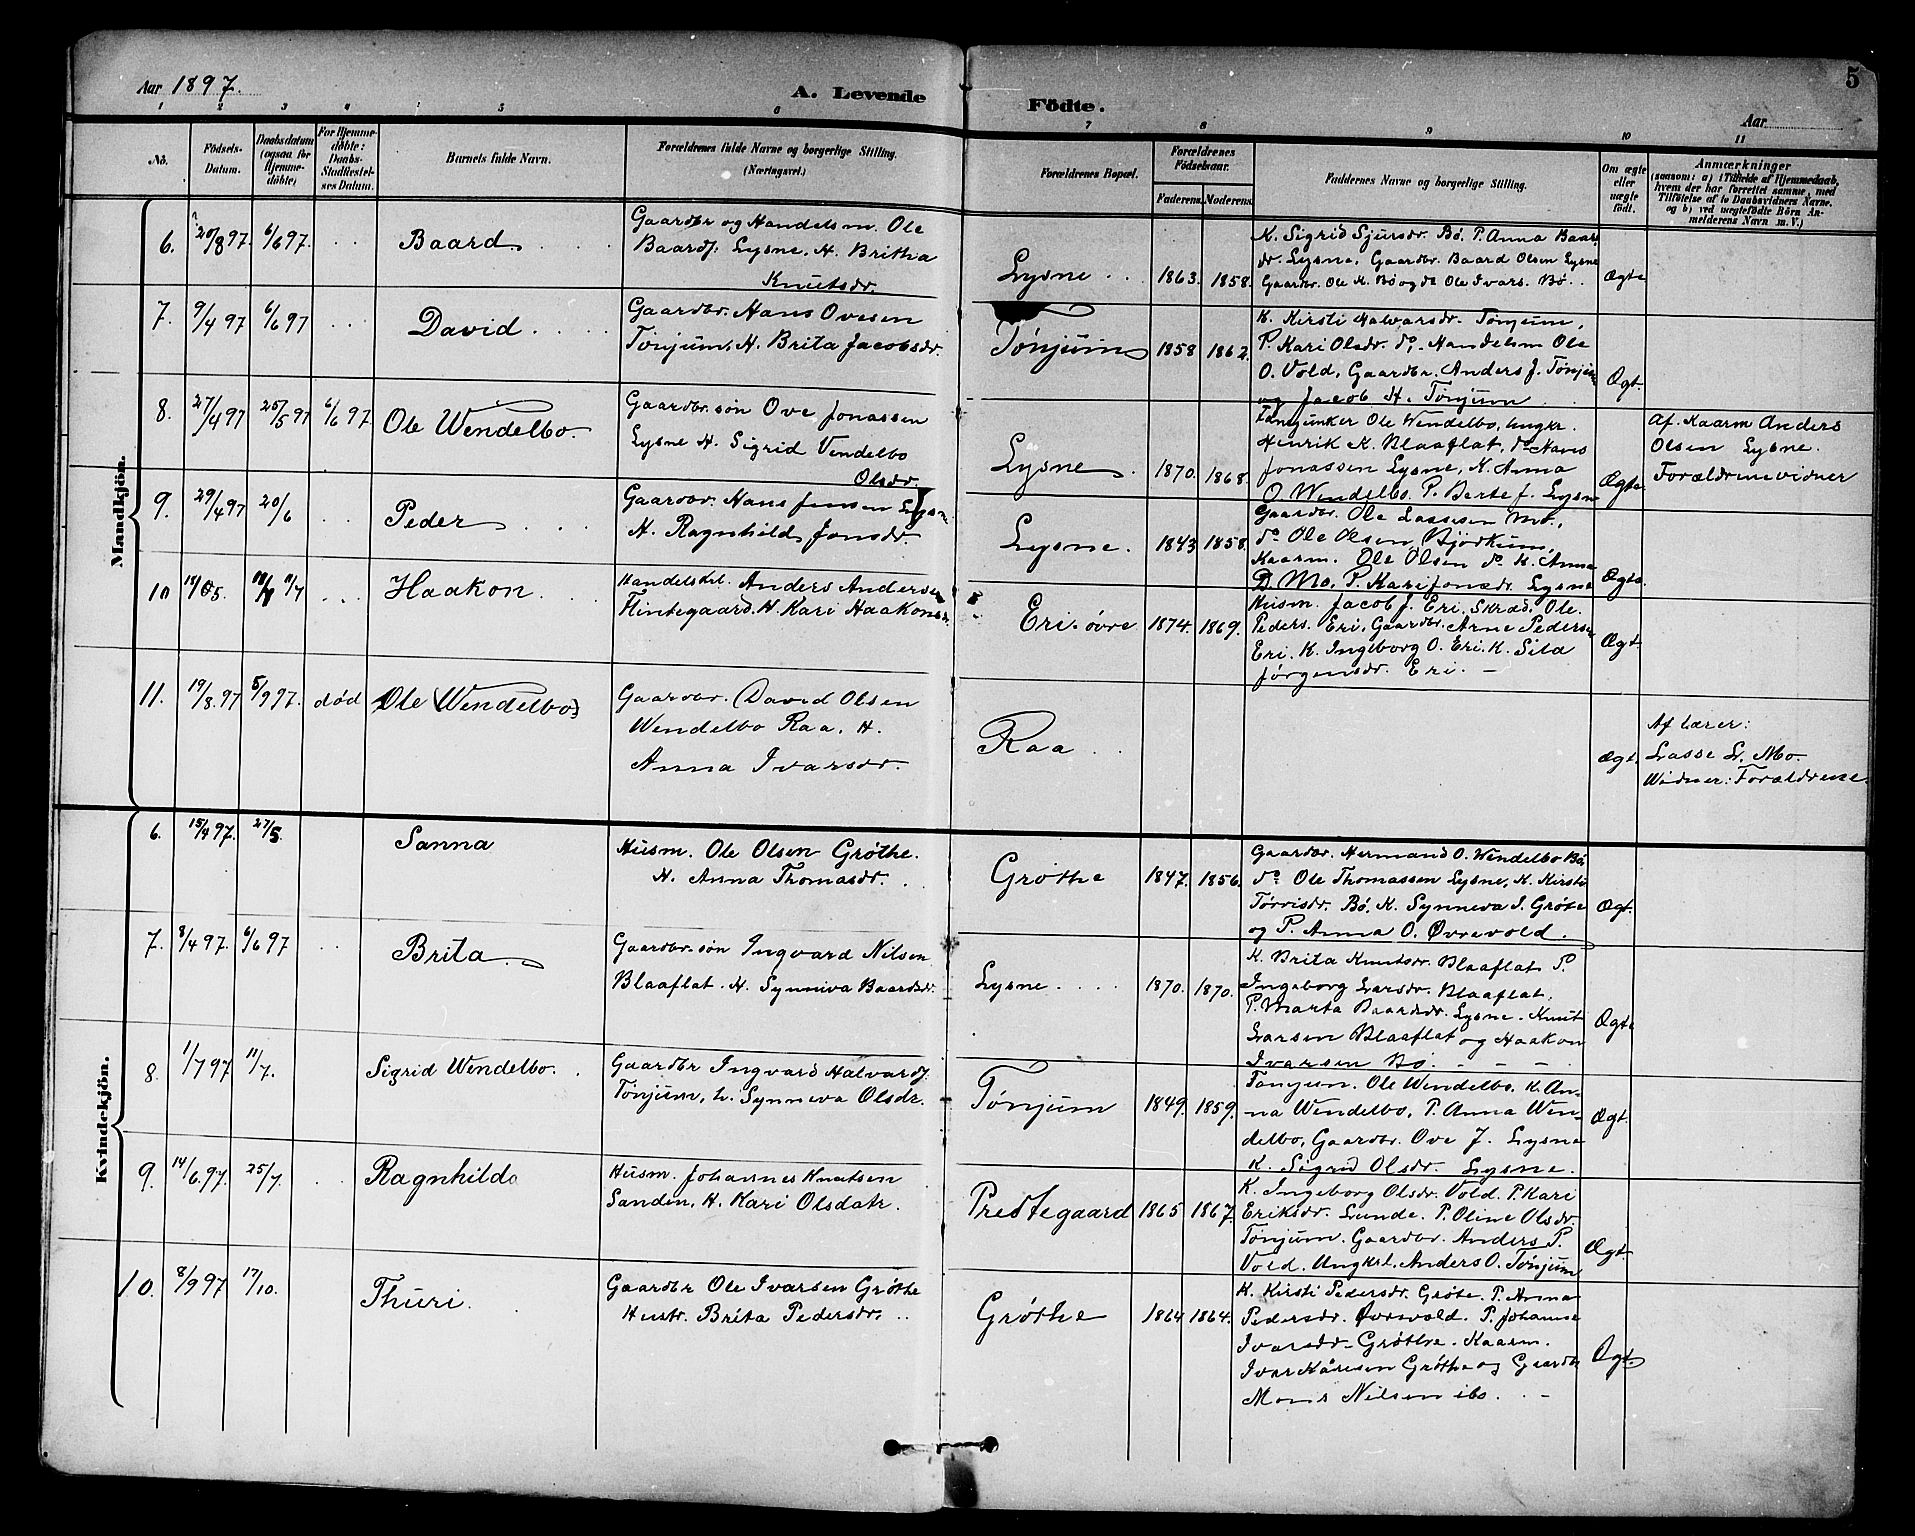 Aar 1897.
A. Levende
Födte.
5
Aar
1 2 3 4 5 6 7 8 9 10 11
No.
Födsels-
Datum.
Daabsdatum
(ogsaa for
Hjemme-
döbte)
For Hjemme-
döbte:
Daabs-
Stadfæstel-
ses Datum.
Barnets fulde Navn.
Forældrenes fulde Navne og borgerlige Stilling.
(Næringsvei.)
Forældrenes Bopæl.
Forældrenes
Födselsaar.
Faderens. Moderens.
Faddernes Navne og borgerlige Stilling.
Om ægte
eller
uægte
födt.
Anmærkninger
(saasom: a) i Tilfælde af Hjemmedaab,
hvem der har forrettet samme, med
Tilföielse af to Daabsvidners Navne.
og b) ved uægtefödte Börn An-
melderens Navn m. V.)
Mandkjön.
6. 20/8 97 6/6 97. Baard
Gaardbr og Handelsm. Ole
Baardj. Lysne. H. Britha
Knutsdr.
Lysne 1863. 1858.
K. Sigrid Sjursdr. Bø. P. Anna Baar
dr. Lysne, Gaardbr. Baard Olsen Lysne
Gaardbr. Ole K. Bø og do Ole Ivars. Bø.
Ægte
7. 9/4 97 6/6 97 David
Gaardbr. Hans Ovesen
Tønjum, H. Brita Jacobsdr.
Tønjum 1858 1862.
K. Kirsti Halvarsdr. Tønjum,
P. Kari Olsdr. do. Handelsm Ole
O. Vold, Gaardbr. Anders J. Tønjum
og Jacob H. Tønjum
Ægt.
8. 27/4 97 25/5 97 6/6 97 Ole Wendelbo.
Gaardbr. søn Ove Jonassen
Lysne H. Sigrid Vendelbo
Olsdr.
Lysne 1870. 1868.
Fanejunker Ole Wendelbo, Ungkr.
Henrik K. Blaaflat, do Hans
Jonassen Lysne, K. Anna
O. Wendelbo. P. Berte J. Lysne
Ægte
Af. Kaarm Anders
Olsen Lysne.
Forældrene vidner
9. 29/4 97 20/6 Peder
Gaardbr. Hans Jensen Lysne
H. Ragnhild Jonsdr.
Lysne. 1843 1858.
Gaardbr. Ole Lassesen Mo.,
do Ole Olsen Bjørkum,
Kaarm. Ole Olsen do K. Anna
D. Mo, P. Kari Jonsdr. Lysne
Ægte
10 11/7 Haakon
Handelskrl. Anders Anders
Flintegaard. H. Kari Haakons
Eri. øvre 1874. 1869.
Husm. Jacob J. Eri, Skræd. Ole.
Peders. Eri, Gaardbr. Arne Peders
Eri. K. Ingeborg O. Eri. K. Sila
Jørgensdr. Eri. —
Ægt.
11. 19/8. 97 5/9 97. død Ole Wendelbo
Gaardbr. David Olsen
Wendelbo Raa. H.
Anna Ivarsdr.
Raa
Ægt.
Af lærer:
Lasse L. Mo.
Widner: Forældrene
Kvindekjön.
6. 15/4 97. 27/5. Sanna
Husm. Ole Olsen Grøthe.
H. Anna Thomasdr.
Grøthe 1847. 1856.
Gaardbr. Hermand O. Wendelbo Bø,
do Ole Thomassen Lysne, K. Kirsti
Torrisdr. Bø, K. Synneva I. Grøte
og P. Anna O. Øvrevold.
Ægt.
7. 8/4 97. 6/6 97 Brita
Gaardbr. søn Ingvard Nilsen
Blaaflat. H. Synneva Baardsdr.
Lysne 1870. 1870.
K. Brita Knutsdr. Blaaflat P.
Ingeborg Larsdr. Blaaflat,
P. Marta Baardsdr. Lysne. Knut
Larsen Blaaflat og Haakon
Ivarsen Bø. - - -
Ægte
8. 1/7 97 11/7. Sigrid Wendelbo.
Gaardbr Ingvard Halvardj.
Tønjum, h. Synneva Olsdr.
Tønjum 1849. 1859.
Tonjum. Ole Wendelbo. K. An-
na Wendelbo, P. Anna Wen-
delbo, Gaardbr. Ove J. Lysne
K. Sigrid Olsdr. Lysne.
Ægt.
9. 14/6. 97. 25/7 Ragnhilda
Husm. Johannes Knutsen
Sanden, H. Kari Olsdatr.
Prestegaard 1865 1867.
K. Ingeborg Olsdr. Vold. P. Kari
Eriksdr. Lunde. P. Oline Olsdr.
Tønjum. Gaardbr. Anders P.
Vold. Ungkrl. Anders O. Tønjum
Ægt.
10. 8/9 97 17/10. Thuri.
Gaardbr Ole Ivarsen Grøthe
Hustr. Brita Pedersdr.
Grøthe 1864 1864.
K. Kirsti Pedersdr. Grøte. P. Anna
Pedersdr. Øvrevold. P. Johanne
Ivarsdr. Grøthe. Kaarm.
Ivar Kåresen Grøthe og Gaardbr
Mons Nilsen ibo. -
Ægt.